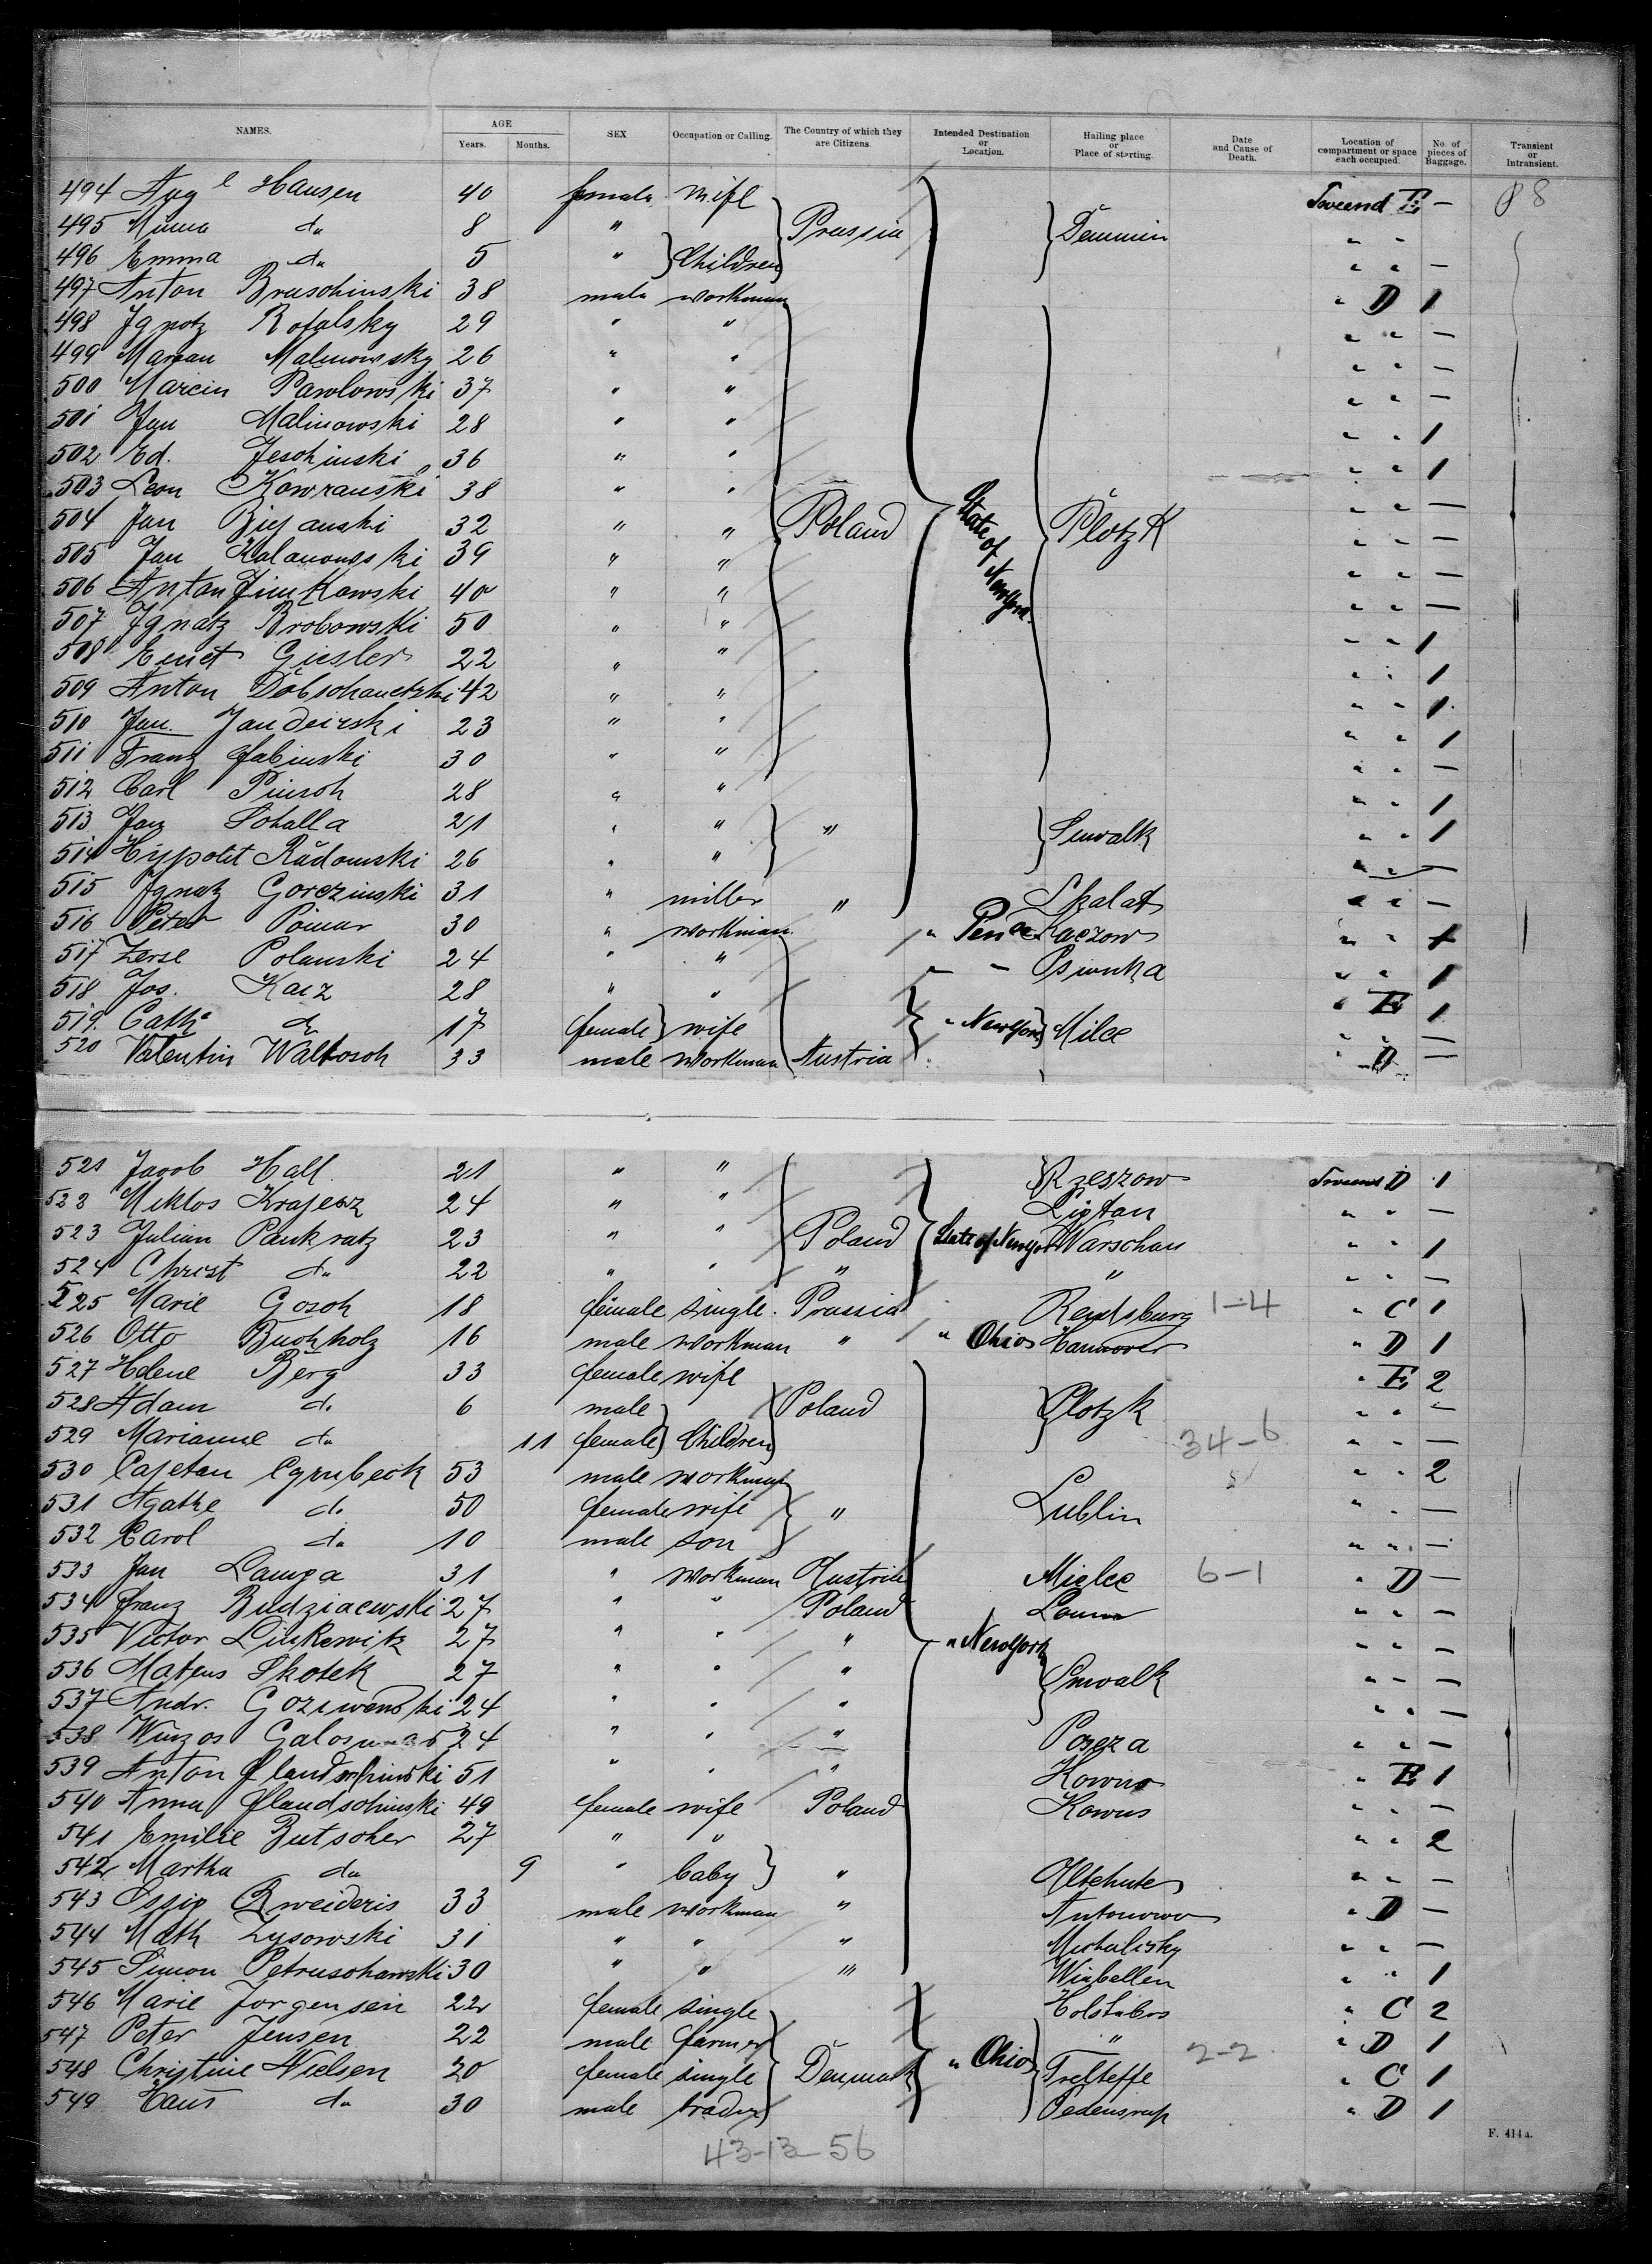 NAMES. AGE Years. Months. SEX Occupation or Calling. The Country of which they are Citizens. Intended Destination or Location. Hailing place or Place of starting. Date and Cause of Death. Location of compartment or space each occupied. No. of pieces of Baggage. Transient or Intransient.
494 Aug e Hansen 40 female wife E — 88
495 Minna do 8 " Prussia Demmin " "
496 Emma do 5 " Children " " —
497 Anton Bruschinski 38 male workman " D 1
498 Ignatz Rofalsky 29 " " " " —
499 Marian Malinowsky 26 " " " " —
500 Marcin Pawlowski 37 " " " " —
501 Jan Malinowski 28 " " " " 1
502 Ed. Jeschinski 36 " " " " 1
503 Leon Kowranski 38 " " " " —
504 Jan 32 " " Poland State of Newyork Plotzk " " —
505 Jan Kalanowski 39 " " " " —
506 Anton Jimkowski 40 " " " " —
507 Ignatz Brobowski 50 " " " " 1
508 Giesler 22 " " " " 1
509 Anton Dobschanetzki 42 " " " " 1
510 Jan Jandeirski 23 " " " " 1
511 Franz Jabinski 30 " " " " —
512 Carl Pinsch 28 " " " " 1
513 Jan Sohalla 21 " " " Suwalk " " 1
514 Hypolit Radomski 26 " " " " —
515 Ignatz Gorczinski 31 " miller " Skalat " " —
516 Peter 30 " workman " Penna Raczow " " 1
517 Polanski 24 " " " " Osiwnka " " 1
518 Jos. Karz 28 " " " E 1
519 Cath do 17 female wife " Newyork Milce " " —
520 Valentin Waltosch 33 male workman Austria " D —
521 Jacob Hall 21 " " Rzeszow D 1
522 Miklos Krajewz 24 " " Liptau " " —
523 Julian Pankratz 23 " " Poland State of Newyork Warschau " " 1
524 Christ do 22 " " " " " " —
525 Marie Gosch 18 female single Prussia Rendsburg 1-4 " C 1
526 Otto Buchholz 16 male workman " " Ohio Hannover " D 1
527 Helene Berg 33 female wife " E 2
528 Adam do 6 male Poland Plotzk " " —
529 Marianne do 11 female Children 34-6 " " —
530 Cajetan Cyrubeck 53 male workman " " 2
531 Agathe do 50 female wife " Lublin " " —
532 Carol do 10 male son " " —
533 Jan Lampa 31 " workman Austria Mielce 6-1 " D —
534 Franz Budziaewski 27 " " Poland " " —
535 Victor Linkewitz 27 " " " " Newyork " " —
536 Mateus Skotek 27 " " " Suwalk " " —
537 Andr. 24 " " " " " —
538 24 " " " " " —
539 Anton 51 " " " Kowno " E 1
540 Anna Glandschinski 49 female wife Poland Kowno " " —
541 Emilie Butscher 27 " " " " 2
542 Martha do 9 " baby " " " —
543 Ossip 33 male workman " Antonowo " D —
544 Math Lysowski 31 " " " Michalisky " " —
545 Simon Petruschawski 30 " " " Wirbellen " " 1
546 Marie Jorgensen 22 female single Holstebro " C 2
547 Peter Jensen 22 male farmer " 2-2 " D 1
548 Christine Nielsen 20 female single Denmark " Ohio " C 1
549 Hans do 30 male trader Pedensrup " D 1
43-13-56
F. 414a.